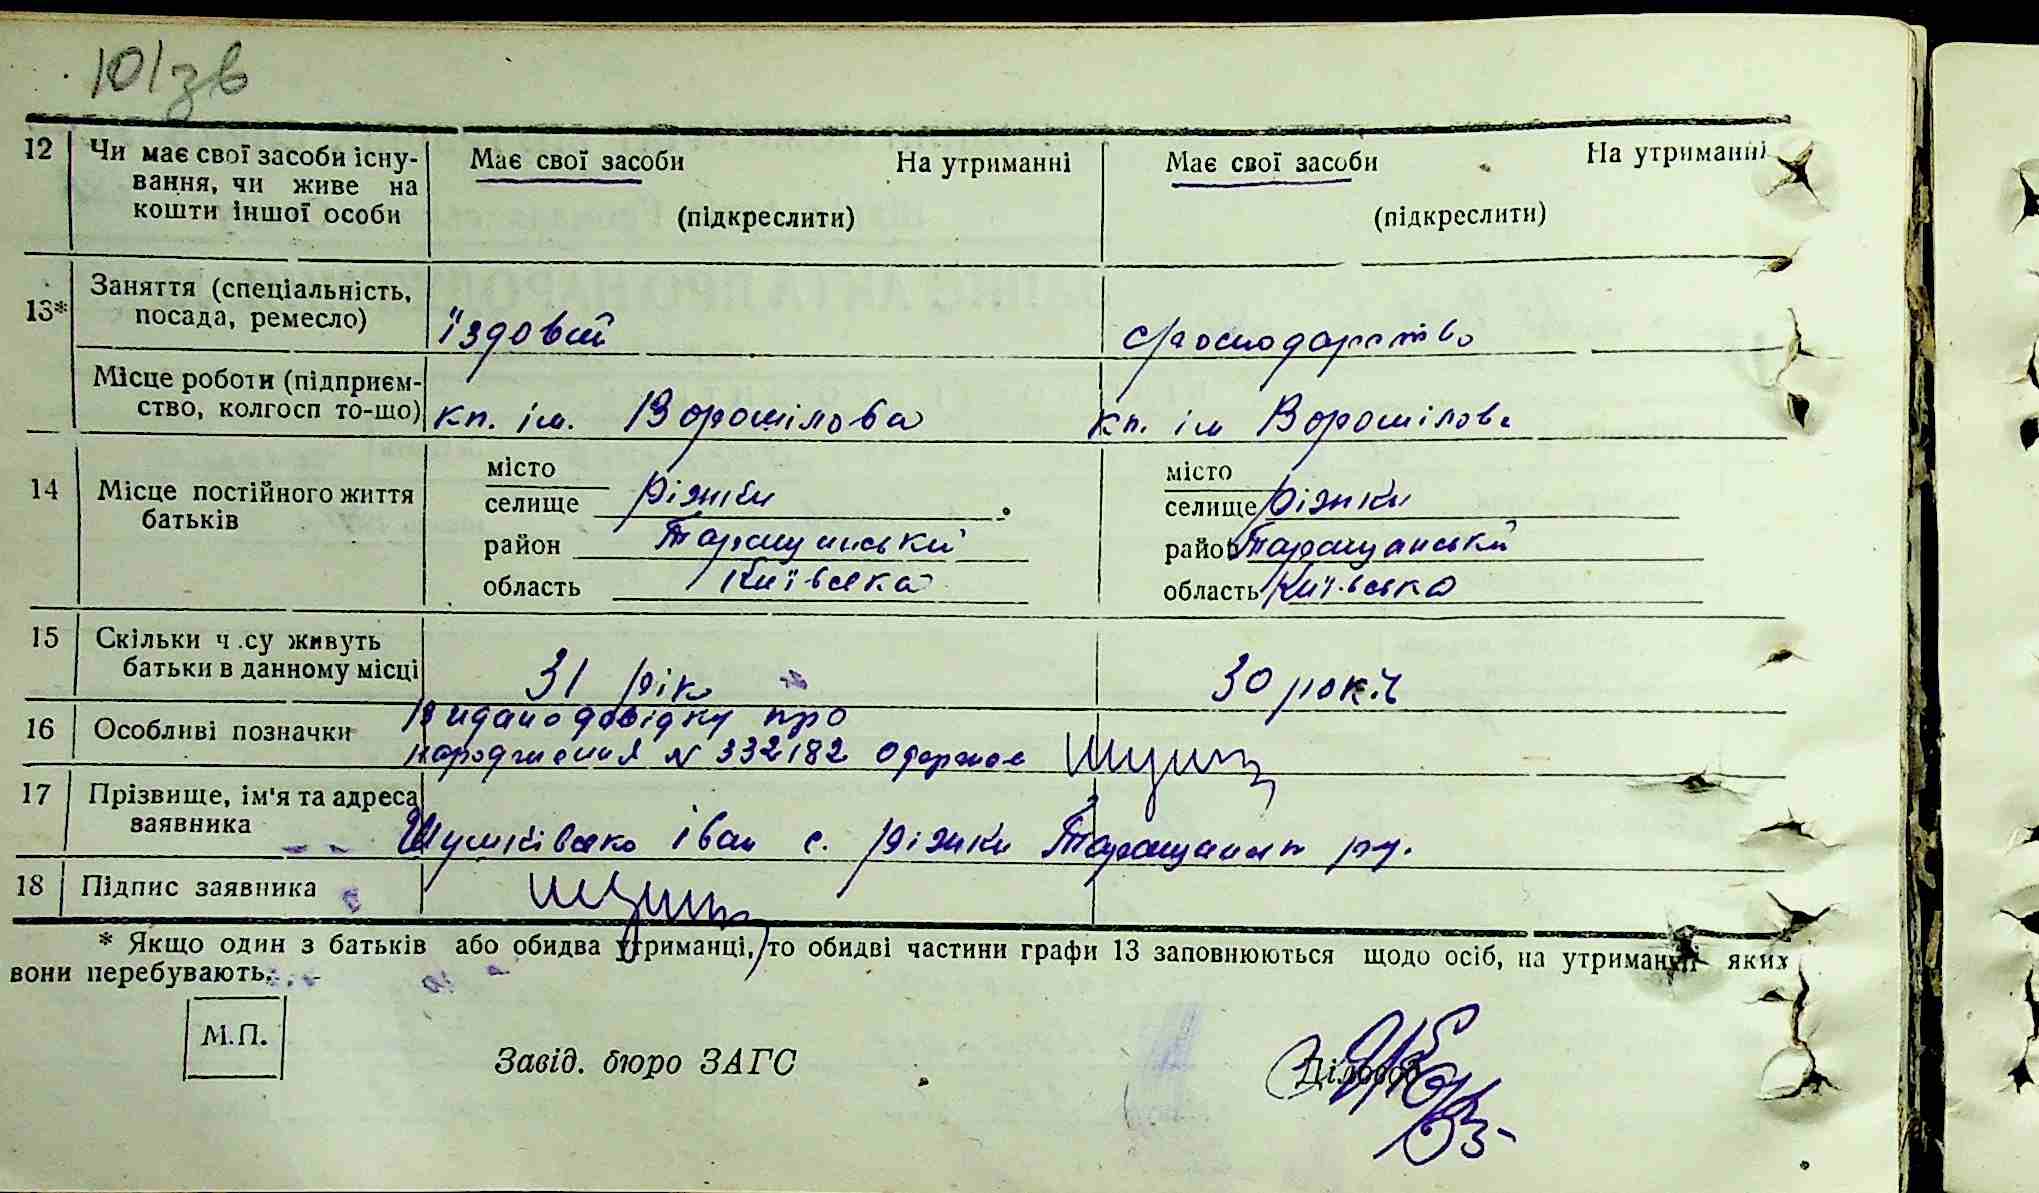 101зв
12 Чи має свої засоби існу- Має свої засоби На утриманні Має свої засоби На утриманні
вання, чи живе на
кошти іншої особи (підкреслити) (підкреслити)
13* Заняття (спеціальність,
посада, ремесло) їздовий с/господарство
Місце роботи (підприєм-
ство, колгосп то-що) кп. ім. Ворошілова кп. ім Ворошілова
14 Місце постійного життя
батьків
місто місто
селище Ріжки селище Ріжки
район Таращанський район Таращанський
область Київська область Київська
15 Скільки ч.су живуть
батьки в данному місці 31 рік 30 років
16 Особливі позначки Видано довідку про
народження N 332182 одержав
17 Прізвище, ім'я та адреса
заявника Шумківсько Іван с. Ріжки
18 Підпис заявника
* Якщо один з батьків або обидва утриманці, то обидві частини графи 13 заповнюються щодо осіб, на утриманні яких
вони перебувають.
М.П.
Завід. бюро ЗАГС Діловод